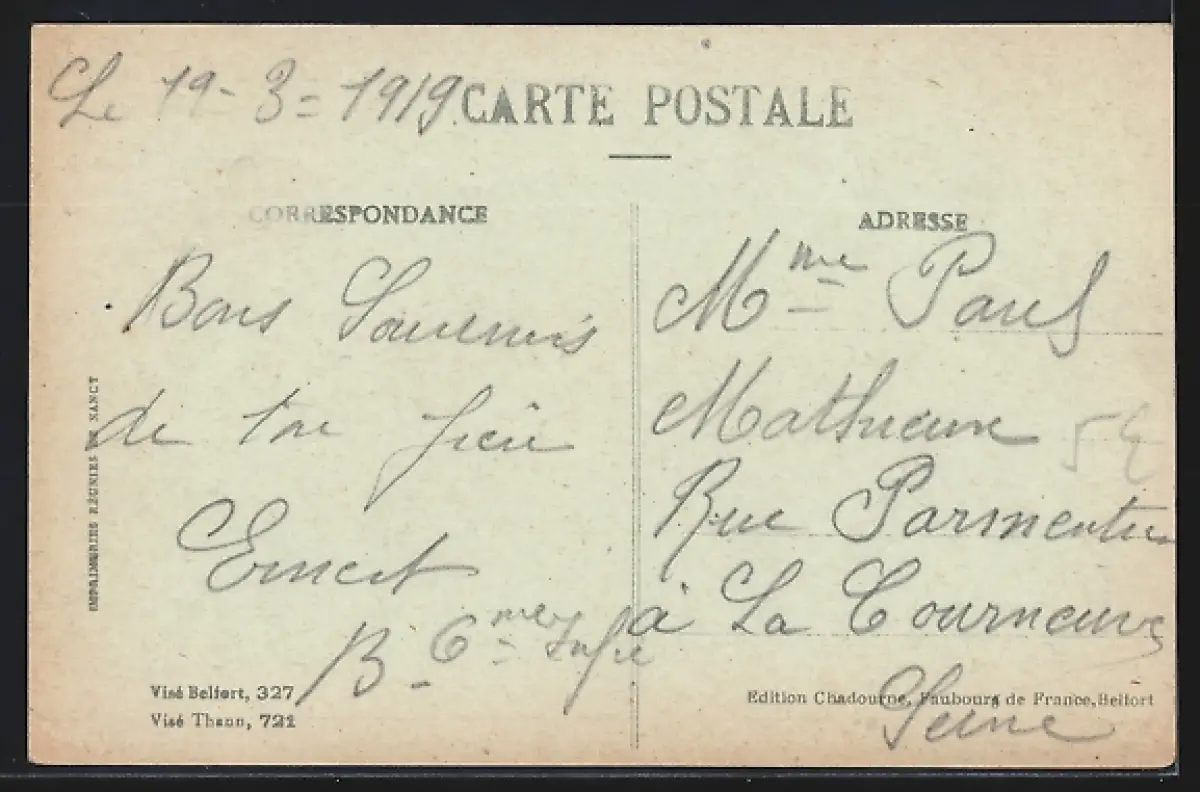 Le 19-3=1919
CARTE POSTALE
CORRESPONDANCE
Bons Souvenirs
de ton frère
Ernest
B. 6me Infie
ADRESSE
Mme Paul
Rue Parmentier
à La Courneuve
Seine
IMPRIMERIES RÉUNIES DE NANCY
Visé Belfort, 327
Visé Thann, 721
Edition Chadourne, Faubourg de France, Belfort